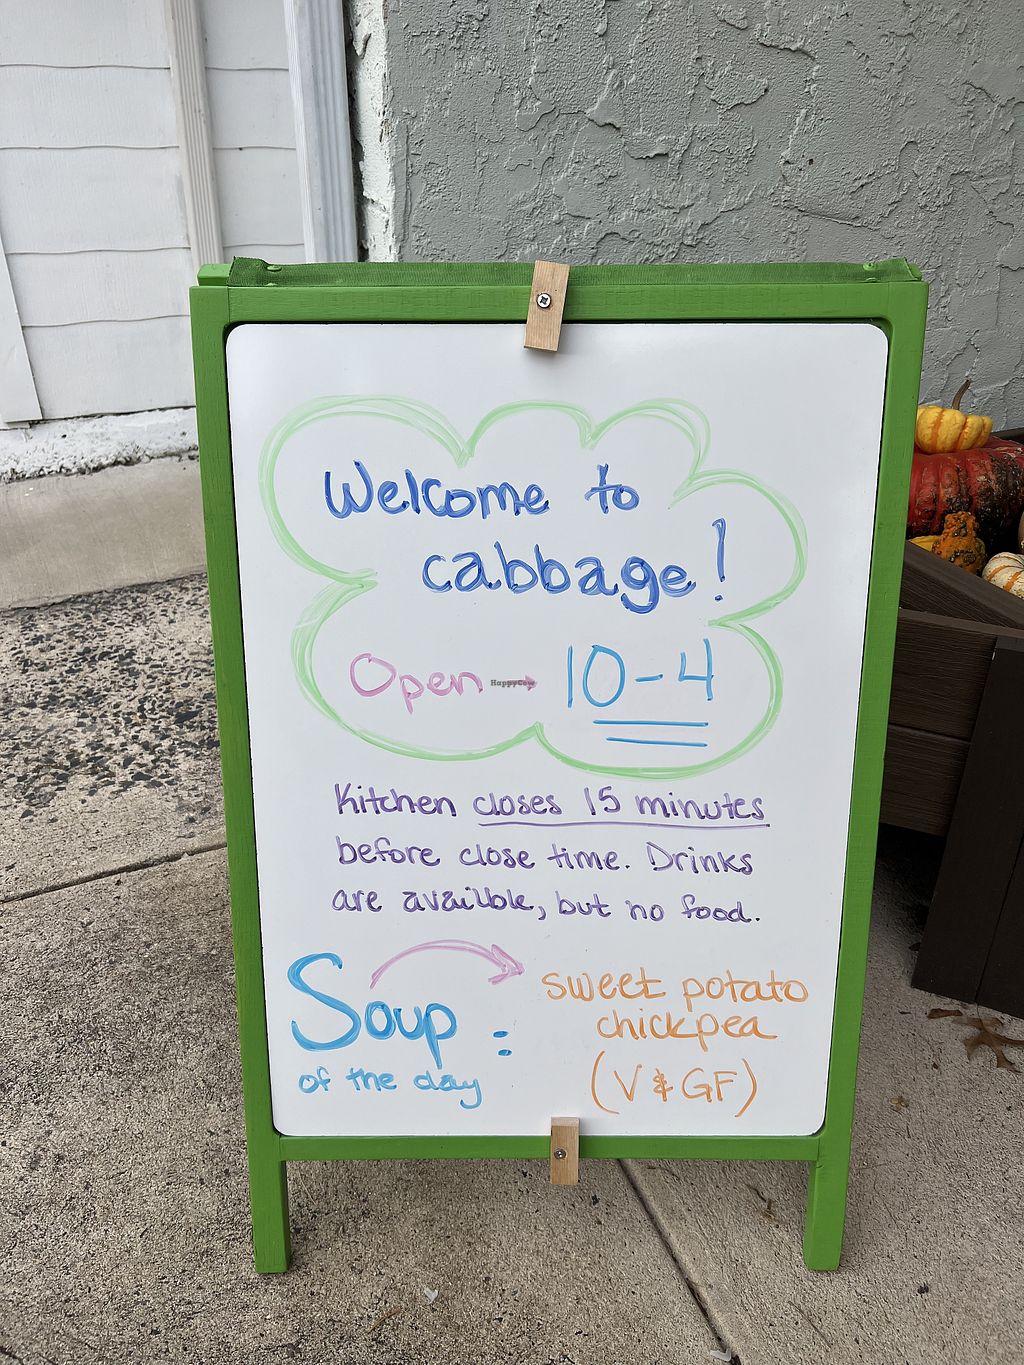 Welcome to
cabbage!
Open → 10-4
HappyCow
Kitchen closes 15 minutes
before close time. Drinks
are availble, but no food.
Soup :
of the day
sweet potato
chickpea
(V & GF)